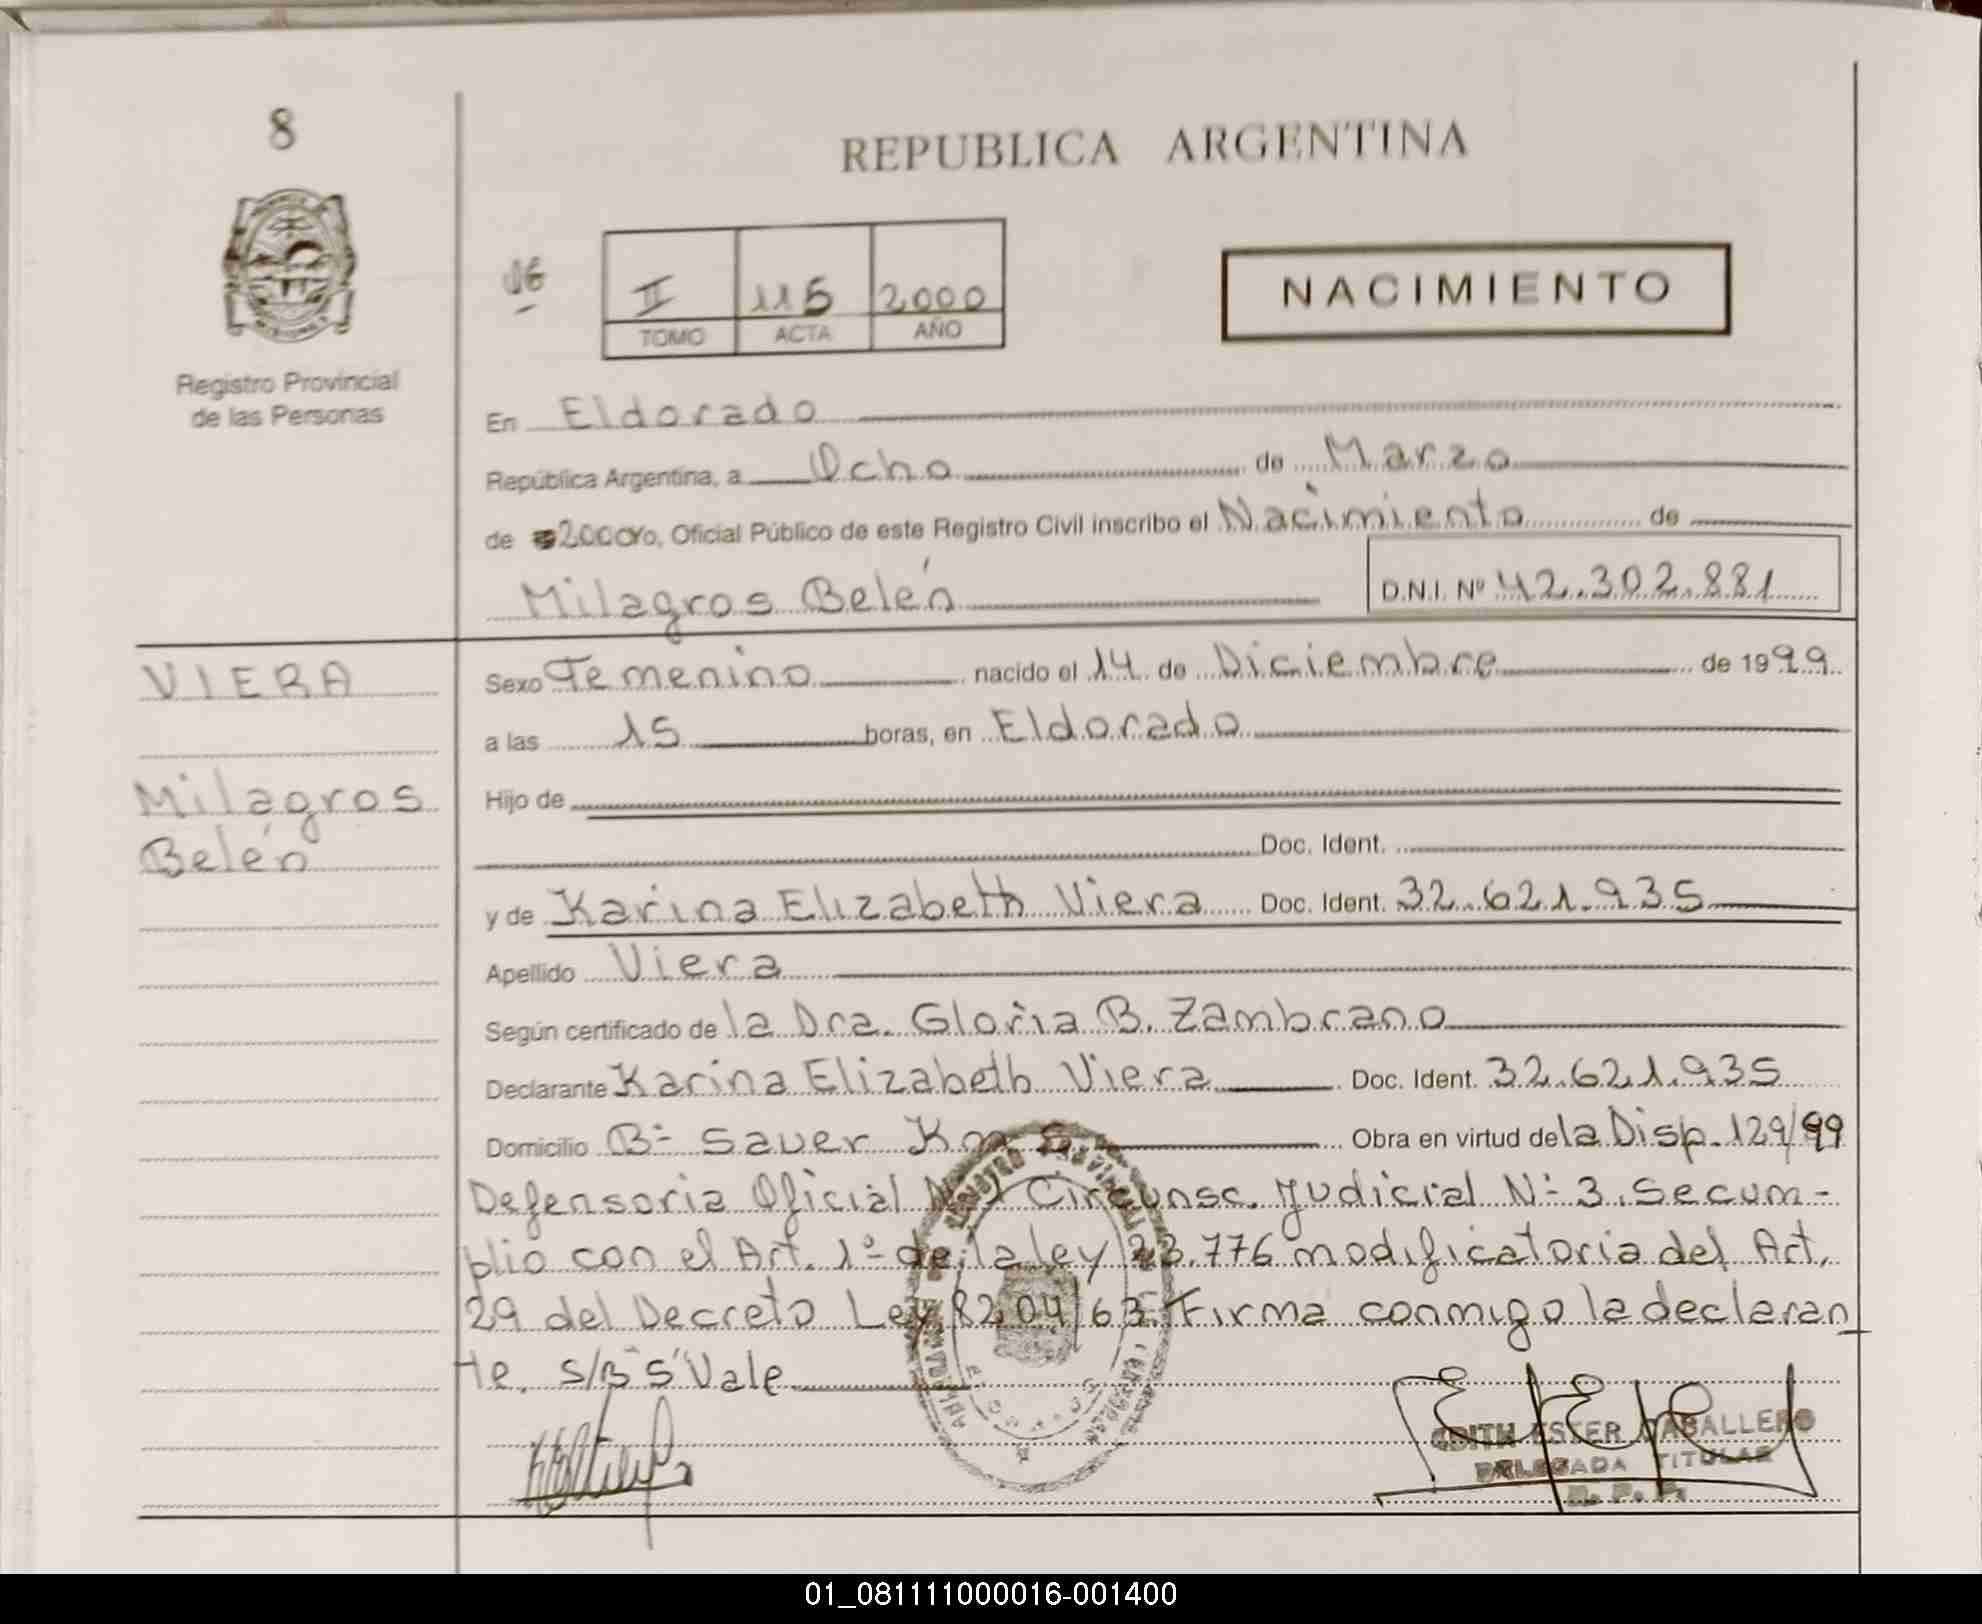 8
REPUBLICA ARGENTINA
II 115 2000
TOMO ACTA AÑO
NACIMIENTO
Registro Provincial
de las Personas
En Eldorado
República Argentina, a Ocho de Marzo
de 2000 yo, Oficial Público de este Registro Civil inscribo el Nacimiento de
Milagros Belén D.N.I. Nº 42.302.881
VIERA
Milagros
Belén
Sexo Femenino nacido el 14 de Diciembre de 1999
a las 15 horas, en Eldorado
Hijo de
Doc. Ident.
y de Karina Elizabeth Viera Doc. Ident. 32.621.935
Apellido Viera
Según certificado de la Dra. Gloria B. Zambrano
Declarante Karina Elizabeth Viera Doc. Ident. 32.621.935
Domicilio Bº Sauer Km Obra en virtud de la Disp. 129/99
Defensoria Oficial Circunsc. Judicial Nº 3. Se cum-
plio con el Art. 1º de la ley 23.776 modificatoria del Art.
29 del Decreto Ley 8204/63. Firma conmigo la declaran
te. S/B "5" Vale
EDITH ESTER CABALLERO
DELEGADA TITULAR
R. P. P.
01_081111000016-001400